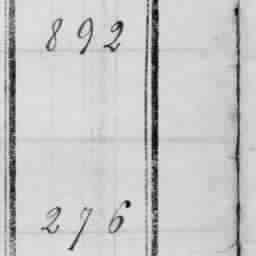 892
276